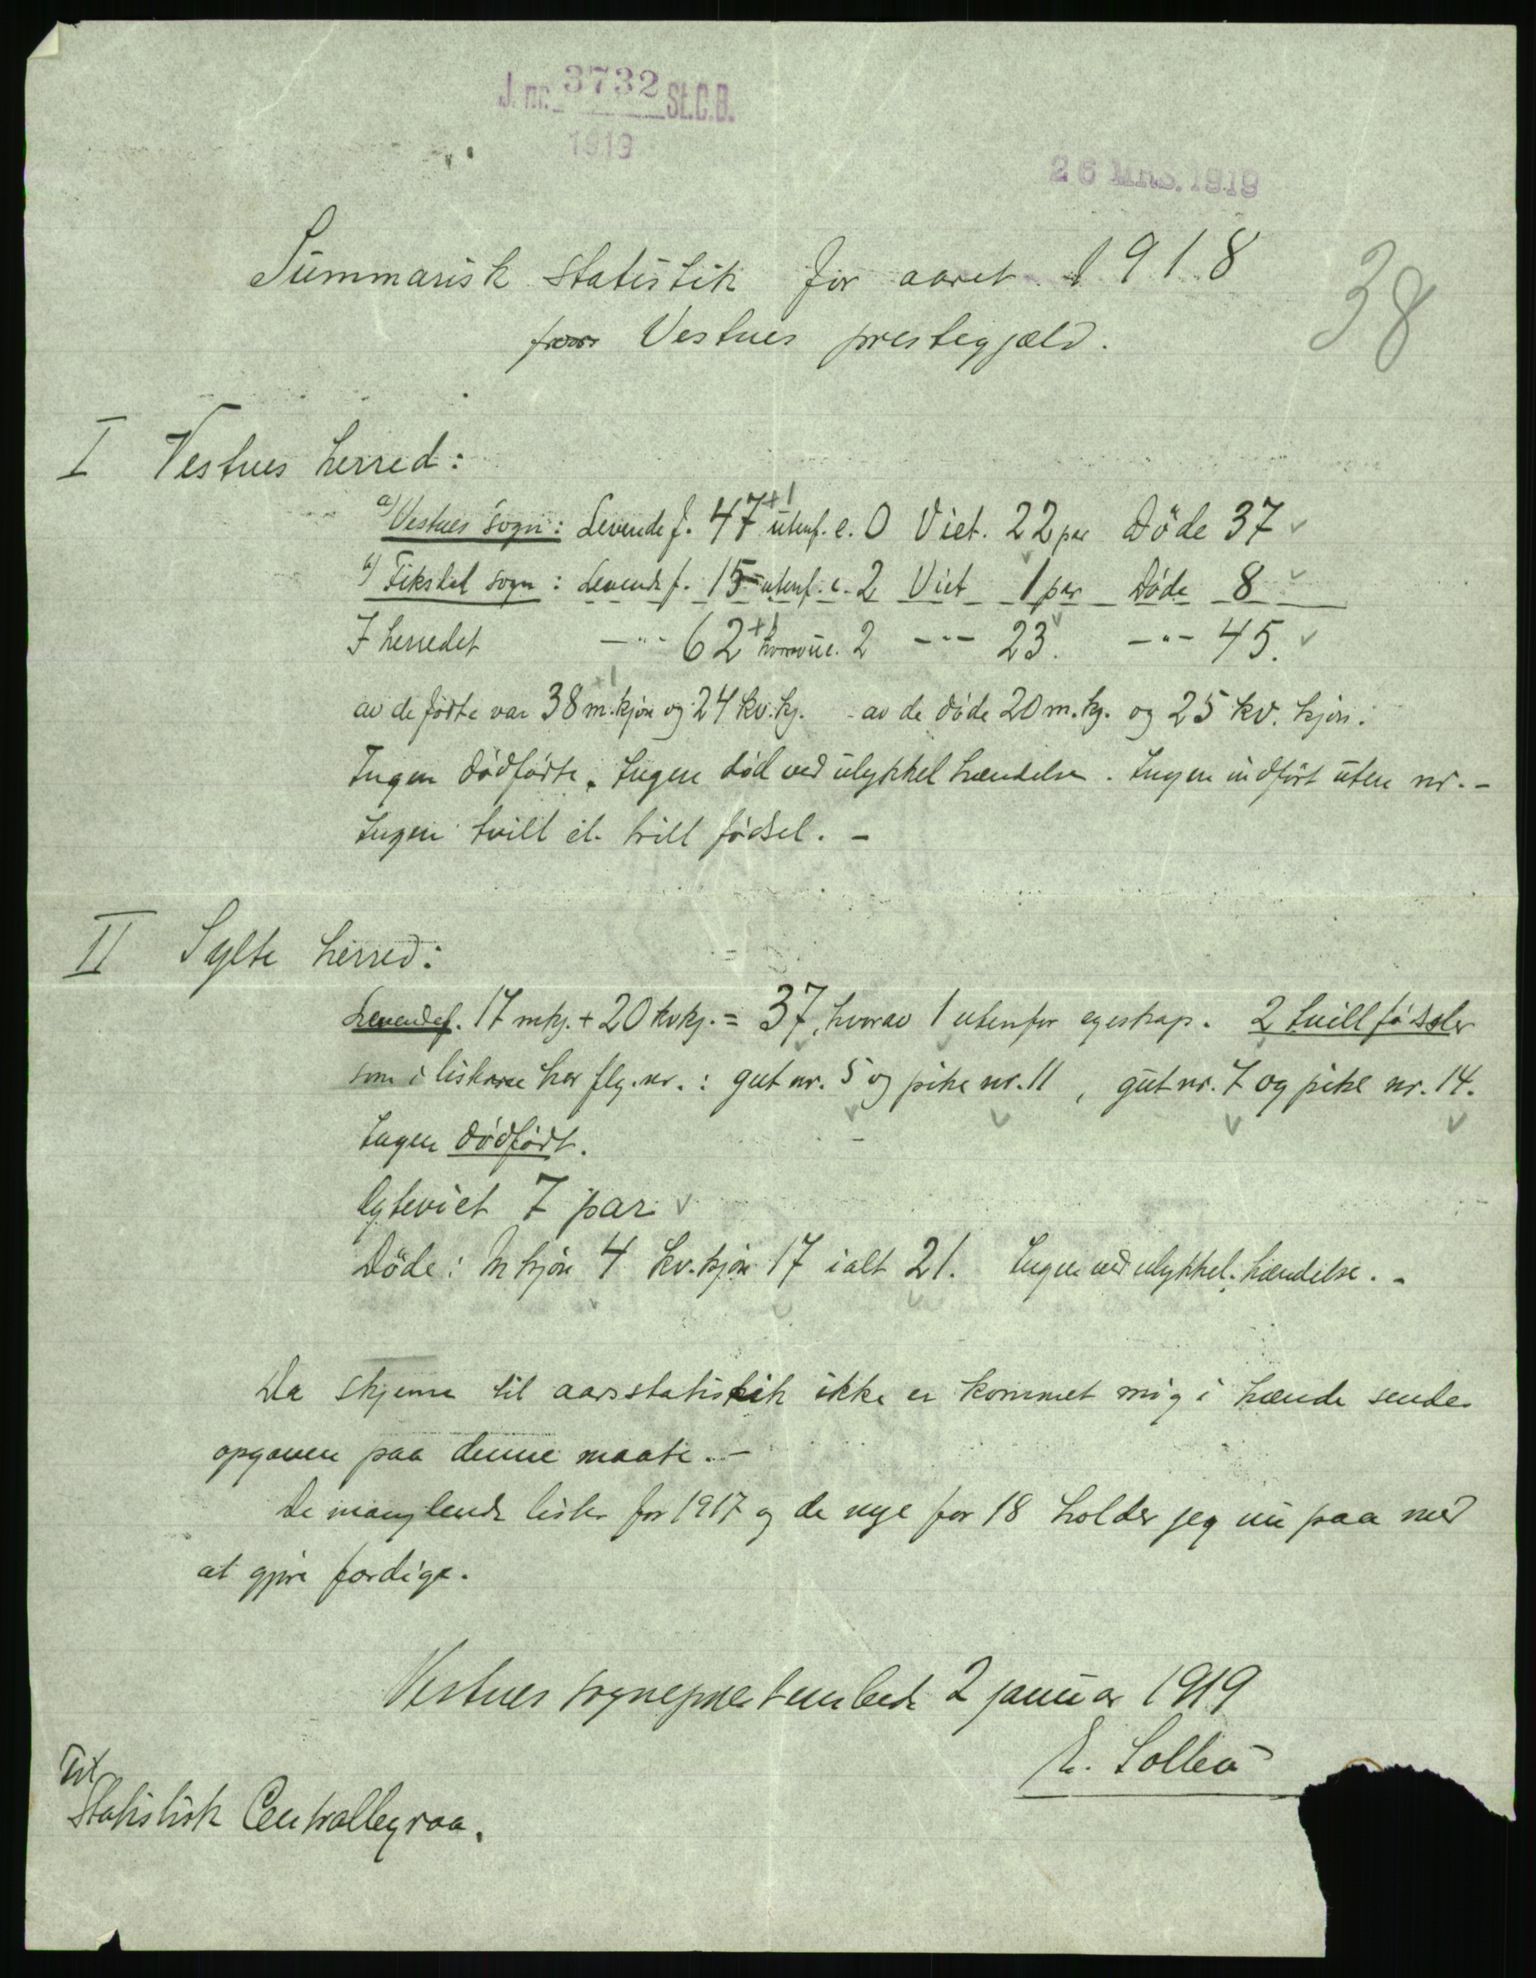 J. nr. 3732 St.C.B.
1919
26 MRS. 1919
Summarisk statistik for aaret 1918
38
Vestnes prestegjæld.
I Vestnes herred:
a) Vestnes sogn: Levende f. 47 +1 utenf. e. 0 Viet. 22 par Döde 37
b) Fiksdal sogn: Levende f. 15 utenf. e. 2 Viet 1 par Döde 8
I herredet —"— 62 +1 hvorav u.e. 2 —"— 23. —"— 45.
+1
av de födte var 38 m.kjön og 24 kv.kj. av de döde 20 m.kj. og 25 kv. kjön.
Ingen dödfödte. Ingen död ved ulykkel hændelse. Ingen indfört uten nr. –
Ingen tvill el. trill födsel. –
II Sylte herred:
Levendef. 17 mkj. + 20 kvkj. = 37, hvorav 1 utenfor egteskap. 2 tvillfödsler
som i listerne har flg. nr.: gut nr. 5 og pike nr. 11, gut nr. 7 og pike nr. 14.
Ingen dödfödt.
Egteviet 7 par
Döde: M kjön 4 kv. kjön 17 ialt 21. Ingen ved ulykkel. hændelse. –
Da skjema til aarsstatistik ikke er kommet mig i hænde sendes
opgaven paa denne maate. –
De manglende lister for 1917 og de nye for 18 holder jeg nu paa med
at gjöre færdige.
Vestnes sogneprestembede 2 januar 1919
E. Solleu
Til
Statistisk Centralbyraa.